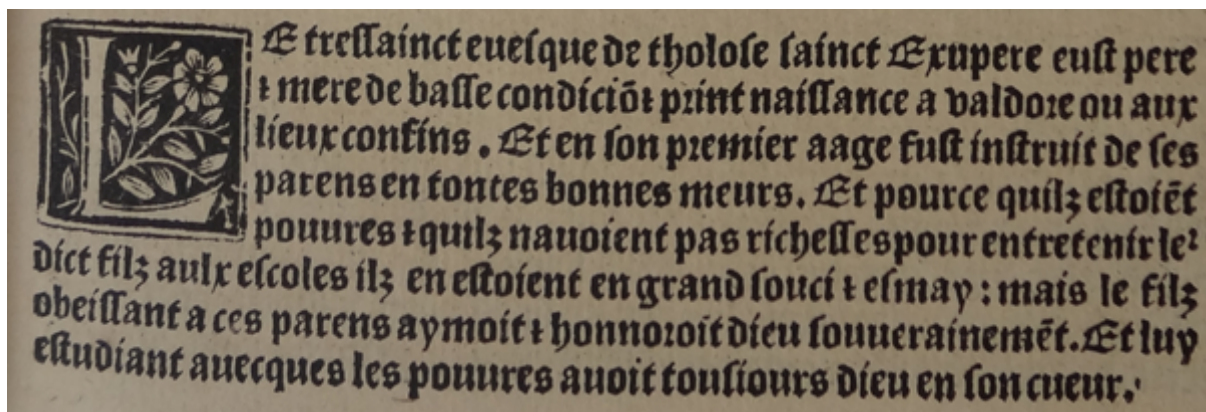 LE treſſainct eueſque de tholoſe ſainct Exupere euſt pere
⁊ mere de baſſe condiciõ⁊ print naiſſance a valdore ou aux
lieux confins . Et en ſon premier aage fuſt inſtruit de ſes
parens en tontes bonnes meurs. Et pource quilz eſtoiẽt
pouures ⁊ quilz nauoient pas richeſſes pour entretenir leꝛ
dict filz aulx eſcoles ilz en eſtoient en grand ſouci ⁊ eſmay : mais le filz
obeiſſant a ces parens aymoit ⁊ honnoroit dieu ſouuerainemẽt. Et luy
eſtudiant auecques les pouures auoit touſiours dieu en ſon cueur.